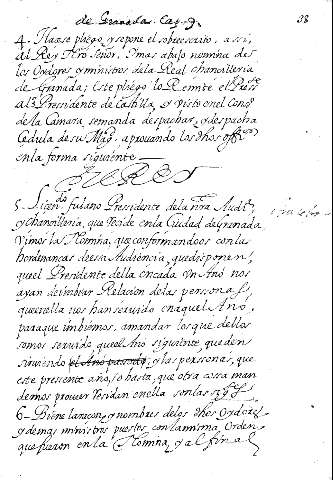 de Granada. Cap. 9.
38
4. Hazese pliego, y se pone el sobreescrito, assi,
al Rey Nro señor, Y mas abajo nomina de
los Oydores y ministros dela Real chancilleria
de Granada; Este pliego lo Remite el Pressᵗᵉ
al Presidente de Castilla, y visto en el Conº
de la Camara, se manda despachar, y despacha
Cedula de su Magᵈ, aprouando los dhos offiᵒˢ
en la forma siguiente
EL REY
5. Licenᵈᵒ fulano Presidente de la nrã Audiᵃ
y chancilleria, que reside en la Ciudad de Granada
Vimos la Nomina, que conformandoos con las
hordenanças de essa Audiencia, que disponen,
que el Presidente della en cada Vn Año nos
ayan de imbiar Relacion de las personas,
que en ella nos han seruido en aquel Año,
para que imbiemos, a mandar los que dellos
somos seruido que el Año siguiente, queden
siruiendo el Año passado, y las personas, que
este presente año, o hasta, que otra cosa man
demos prouer residan en ella son las sigˢ
6. Pone la razon, y nombres de los dhos Oydores,
y demas ministros puestos, con la misma Orden,
que fueron en la Nomina, y al final